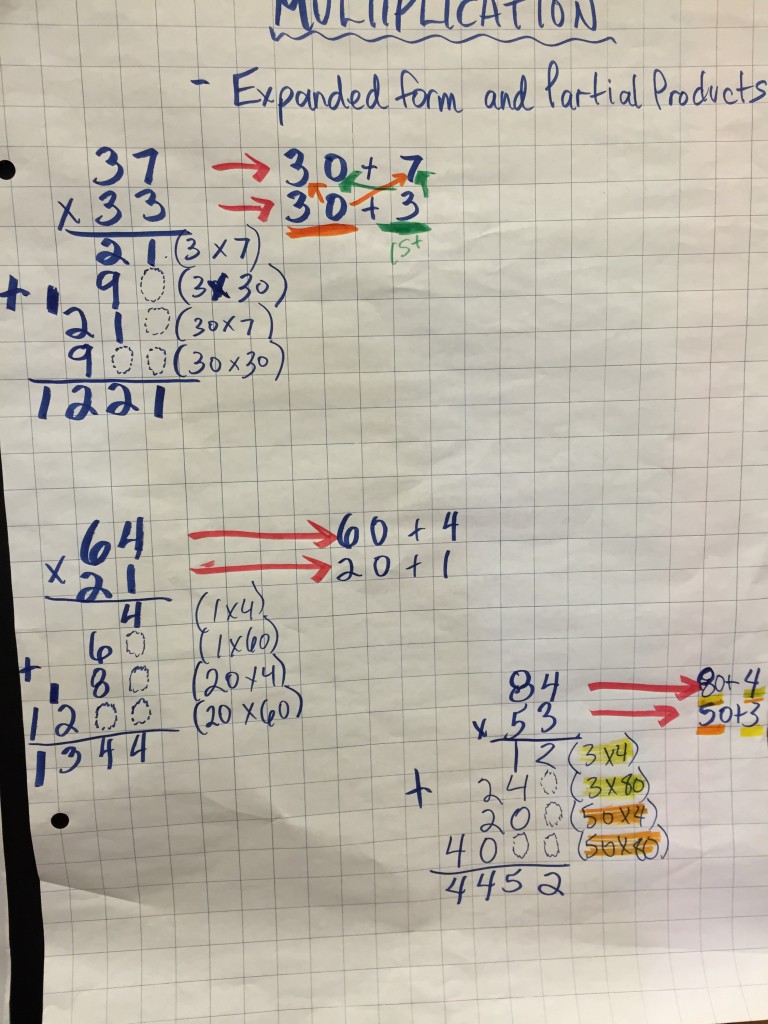 MULTIPLICATION
- Expanded form and Partial Products
37 → 30 + 7
x 33 → 30 + 3
21 (3 x 7) 1st
+ 1 90 (3x30)
210 (30x7)
900 (30x30)
1221
64 → 60 + 4
x 21 → 20 + 1
4 (1x4)
60 (1x60)
+ 1 80 (20x4)
1200 (20x60)
1344
84 → 80+4
x 53 → 50+3
12 (3x4)
+ 240 (3x80)
200 (50x4)
4000 (50x80)
4452